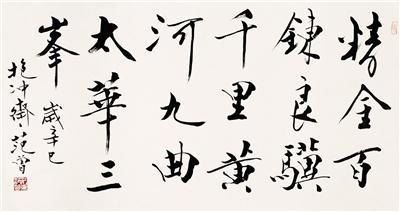 精金百
鍊良驥
千里黄
河九曲
太華三
峯
歲辛巳
抱冲齋范曾